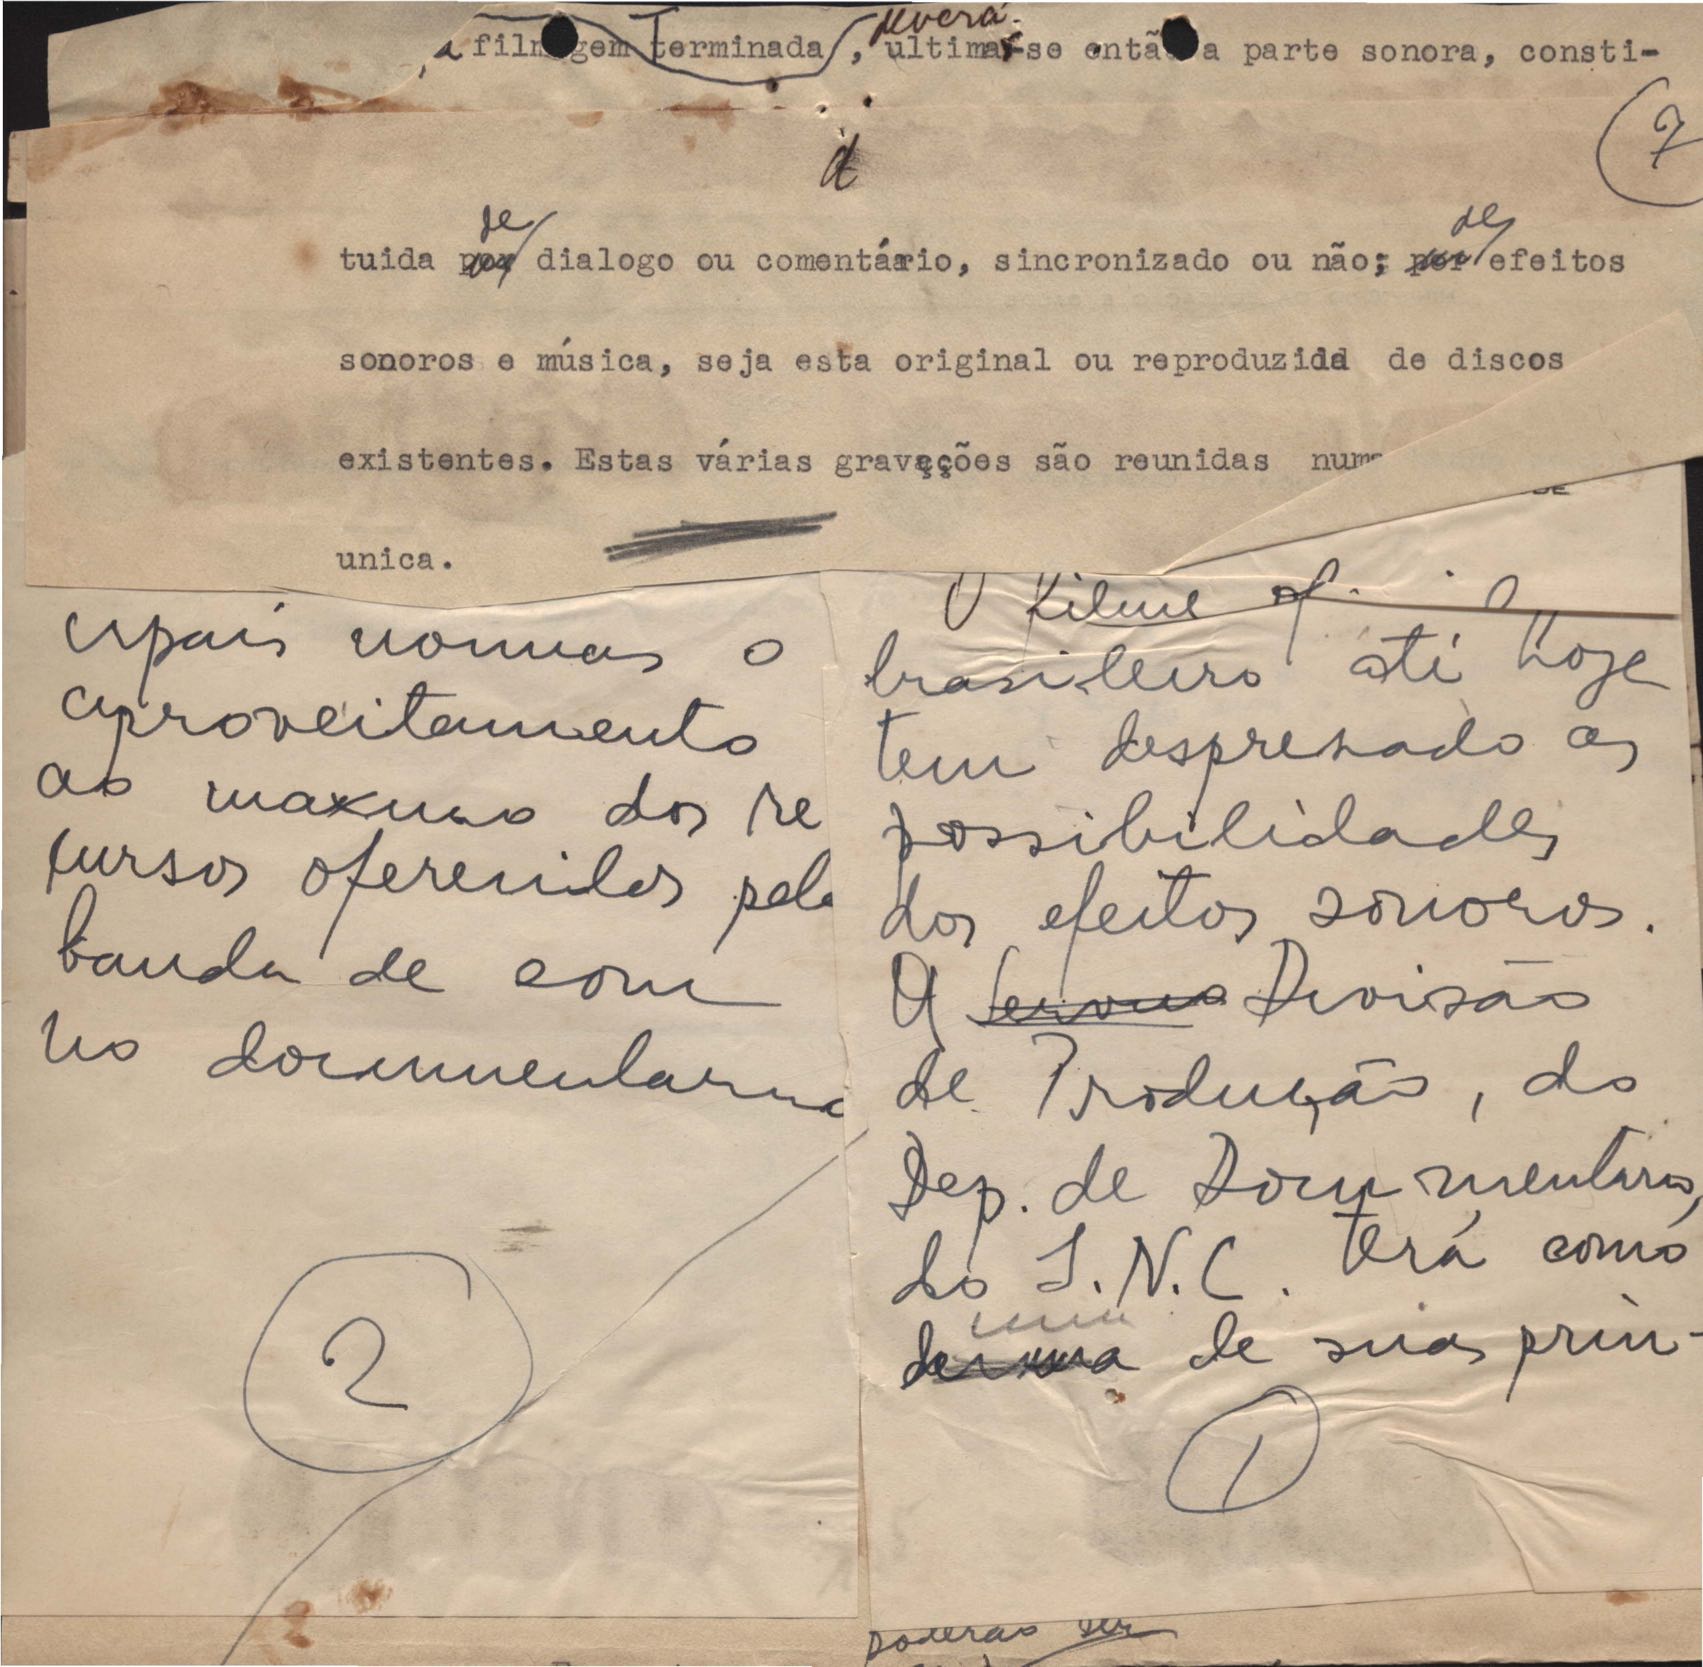 deverá
a filmagem terminada, ultimar-se então a parte sonora, consti-
7
d
de de
tuida por dialogo ou comentário, sincronizado ou não; por efeitos
sonoros e música, seja esta original ou reproduzida de discos
existentes. Estas várias gravações são reunidas numa
unica.
O filme
brasileiro até hoje
tem despresado as
possibilidades
dos efeitos sonoros.
A Divisão
de Produção, do
Dep. de Documentarios,
do I.N.C. terá como
uma
de suas prin-
1
cipais normas o
aproveitamento
ao maximo dos re
cursos oferecidos pela
banda de som
no documentario
2
poderão ser